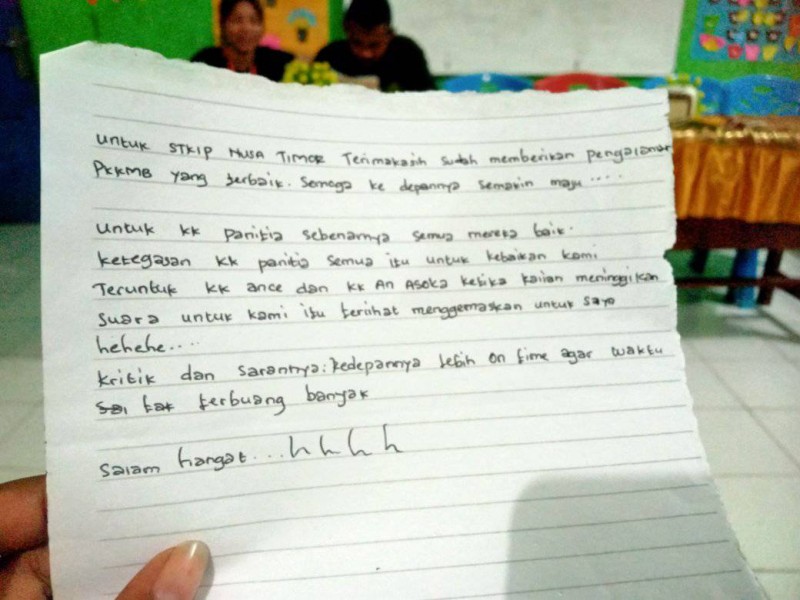 Untuk STKIP NUSA TIMOR Terimakasih sudah memberikan pengalaman
PKKMB yang terbaik. Semoga ke depannya semakin maju ....
Untuk kk panitia sebenarnya semua mereka baik.
Ketegasan kk panitia semua itu untuk kebaikan kami
Teruntuk kk ance dan kk An Asoka ketika kalian meninggikan
suara untuk kami itu terlihat menggemaskan untuk saya
hehehe....
Kritik dan sarannya: kedepannya lebih on time agar waktu
tak terbuang banyak
Salam hangat... h h h h